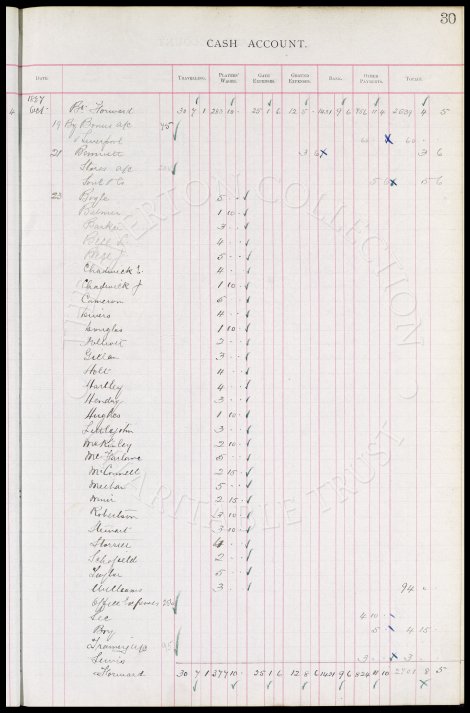 30
CASH ACCOUNT.
DATE. TRAVELLING. PLAYERS' WAGES. GATE EXPENSES. GROUND EXPENSES. BANK. OTHER PAYMENTS. TOTALS.
1897
Bt Forward 30 7 1 283 10 - 25 1 6 12 5 - 1431 9 6 756 11 4 2539 4 5
19 By Bonus a/c
" Liverpool 60 - - 60 - -
21 Bennett 3 6 3 6
Stores a/c
& Co 15 6 15 6
23 Boyle 5 - -
Balmer 1 10 -
Barker 3 - -
Bell L 4 - -
Bell J 5 - -
Chadwick E. 4 - -
Chadwick J 1 10 -
Cameron 5 - -
Divers 4 - -
Douglas 1 10 -
3 - -
Gillan 3 - -
Holt 4 - -
Hartley 4 - -
Hendry 3 - -
Hughes 1 10 -
Littlejohn 3 - -
McKinley 2 10 -
McFarlane 5 - -
McConnell 2 15 -
Meechan 5 - -
Muir 2 15 -
Robertson 3 10 -
Stewart 3 10 -
Storrier 4 - -
Schofield 2 - -
Taylor 5 - -
Williams 3 - - 94 - -
Office Expenses
Lee 4 10 -
Boy 5 - 4 15 -
Training a/c
Lewis 3 - - 3 - -
Forward 30 7 1 377 10 - 25 1 6 12 8 6 1431 9 6 824 11 10 2701 8 5
EVERTON COLLECTION CHARITABLE TRUST